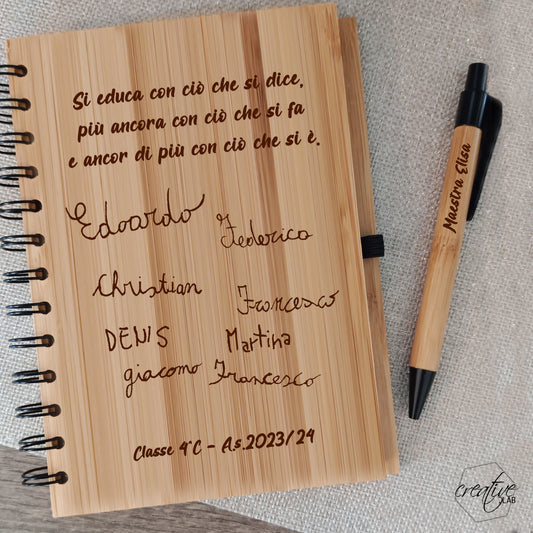 Si educa con ciò che si dice,
più ancora con ciò che si fa
e ancor di più con ciò che si è.
Edoardo Federico
Christian Francesco
DENIS Martina
giacomo Francesco
Classe 4°C - A.s.2023/24
Maestra Elisa
creative
LAB